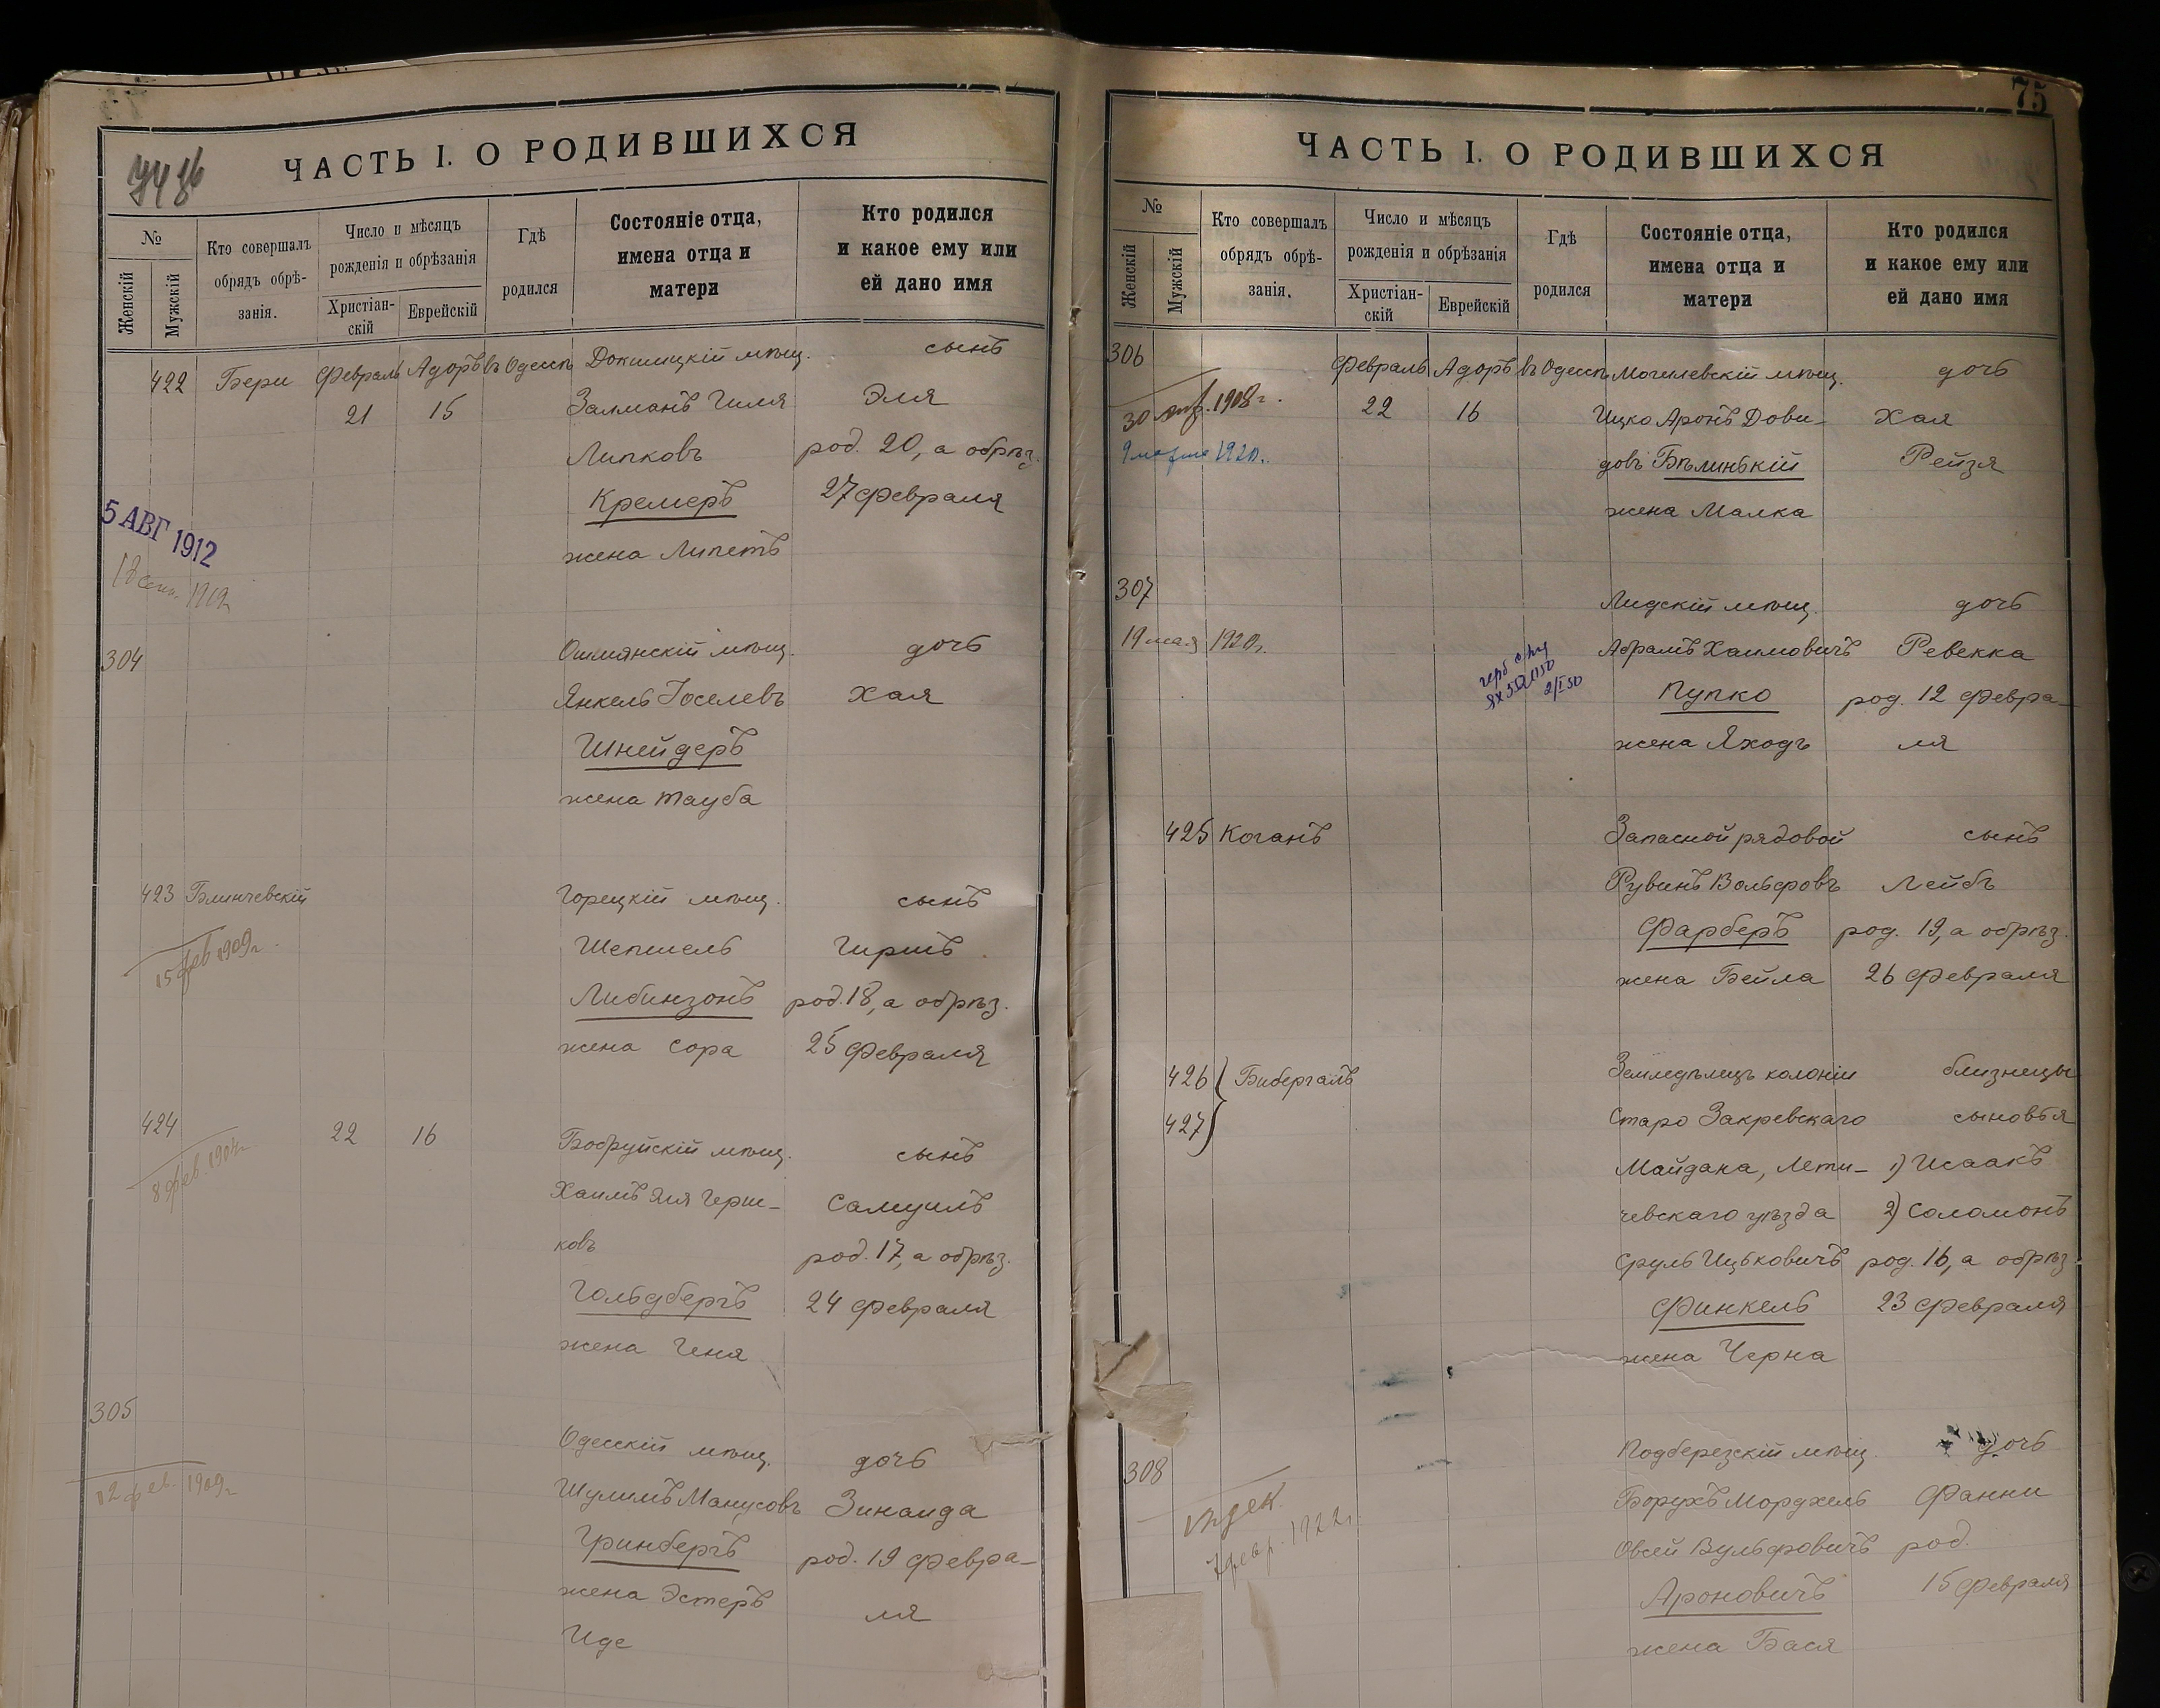 ЧАСТЬ I. О РОДИВШИХСЯ
№
Женскій
Мужскій
Кто совершалъ
обрядъ обрѣ-
занія.
Число и мѣсяцъ
рожденія и обрѣзанія
Христіан-
скій
Еврейскій
Гдѣ
родился
Состояніе отца,
имена отца и
матери
Кто родился
и какое ему или
ей дано имя
422 Бери Февраль Адоръ въ Одессѣ Докшицкій мѣщ. сынъ
21 15 Залманъ Гиля Эля
Липковъ род. 20, а обрѣз.
Кремеръ 27 Февраля
жена Липетъ
5 АВГ 1912
1919
304 Ошмянскій мѣщ. дочь
Янкель Іоселевъ Хая
Шнейдеръ
жена Тауба
423 Блинчевскій Горецкій мѣщ. сынъ
15 фев 1909 г. Шепшель Гиршъ
Либинзонъ род. 18, а обрѣз.
жена Сора 25 Февраля
424 22 16 Бобруйскій мѣщ. сынъ
8 фев. Хаимъ Эля Герш-
ковъ Самуилъ
род. 17, а обрѣз.
Гольдбергъ 24 Февраля
жена Геня
305 Одесскій мѣщ. дочь
12 фев. 1909 г. Шулимъ Манусовъ Зинаида
Гринбергъ род. 19 Февра-
жена Эстеръ ля
Иде
75
ЧАСТЬ I. О РОДИВШИХСЯ
№
Женскій
Мужскій
Кто совершалъ
обрядъ обрѣ-
занія.
Число и мѣсяцъ
рожденія и обрѣзанія
Христіан-
скій
Еврейскій
Гдѣ
родился
Состояніе отца,
имена отца и
матери
Кто родился
и какое ему или
ей дано имя
306 Февраль Адоръ въ Одессѣ Могилевскій мѣщ. дочь
30 1908 г. 22 16 Ицко Аронъ Дови- Хая
9 марта 1920 г. довъ Бѣлинькій Рейзя
жена Малка
307 Лидскій мѣщ. дочь
19 мая 1920 г. Абрамъ Хаимовичъ Ревекка
Пупко род. 12 Февра-
жена Яходъ ля
425 Коганъ Запасной рядовой сынъ
Рувинъ Вольфовъ Лейбъ
Фарберъ род. 19, а обрѣз.
жена Бейла 26 Февраля
426 Бибергалъ Земледѣлецъ колоніи близнецы
427 Старо Закревскаго сыновья
Майдана, Лети- 1) Исаакъ
чевскаго уѣзда 2) Соломонъ
Сруль Ицьковичъ род. 16, а обрѣз.
Финкель 23 Февраля
жена Черна
308 Подберезскій мѣщ. дочь
Борухъ Мордхель Фанни
февр. 1922 г. Овсей Вульфовичъ род.
Ароновичъ 15 Февраля
жена Бася